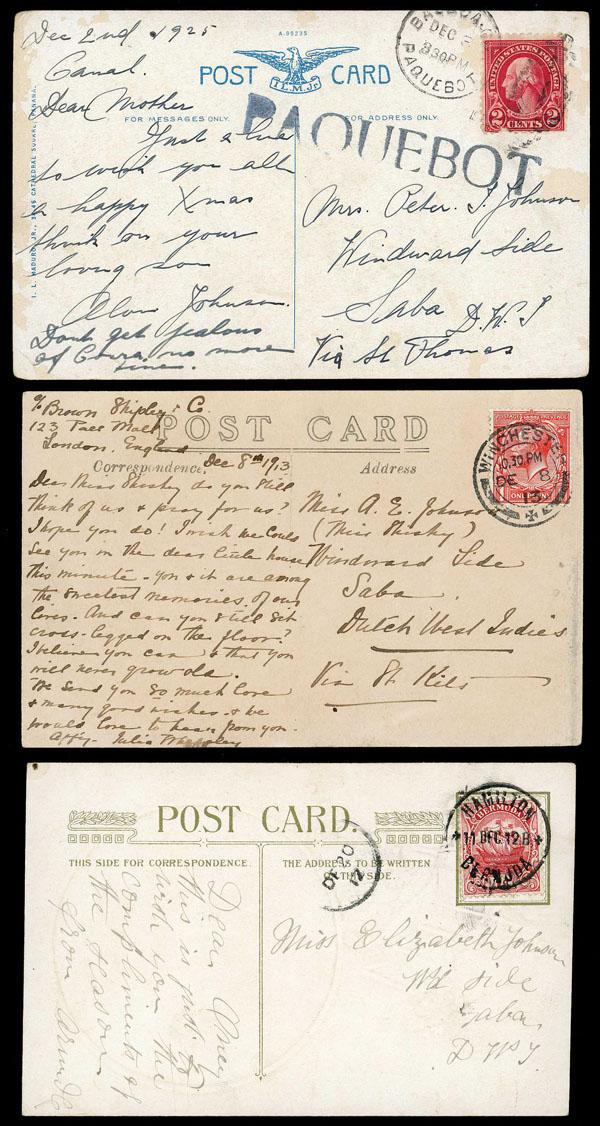 Dec 2nd 1925
Canal.
Dear Mother
Just a line
to wish you all
a happy Xmas
think on your
loving son
Johnson.
Dont get jealous
of no more
A-99235
POST CARD
I. L. M. Jr.
FOR MESSAGES ONLY.
FOR ADDRESS ONLY.
I. L. MADURO JR., CATHEDRAL SQUARE, PANAMA.
BALBOA
DEC 2
830PM
PAQUEBOT
UNITED STATES POSTAGE
2 CENTS 2
PAQUEBOT
Mrs. Peter. I. Johnson
Windward Side
Saba D.W.I
Via St Thomas
c/o Brown Shipley & Co.
123 Pall Mall
London, England
POST CARD
Correspondence.
Address
Dec 8th 1913
Dear Miss Shishy do you still
think of us & pray for us?
I hope you do! I wish we could
see you in the dear little house
this minute - you & it are among
the sweetest memories of our
lives. And can you still sit
cross-legged on the floor?
I believe you can & that you
will never grow old.
We send you so much love
& many good wishes & we
would love to hear from you.
Affy- Julia
POSTAGE REVENUE
ONE PENNY
WINCHESTER
10.30 PM
DE 8
13
Miss A. E. Johnson
(Miss Shishy)
Windward Side
Saba
Dutch West Indies
Via St Kits
POST CARD.
THIS SIDE FOR CORRESPONDENCE.
THE ADDRESS TO BE WRITTEN
THIS SIDE.
DE 20
12
BERMUDA
HAMILTON
11 DEC. 12 B
BERMUDA
Dear
this is just to
wish you the
compliments of
the season
from
Miss Elizabeth Johnson
Wd Side
Saba
D W I